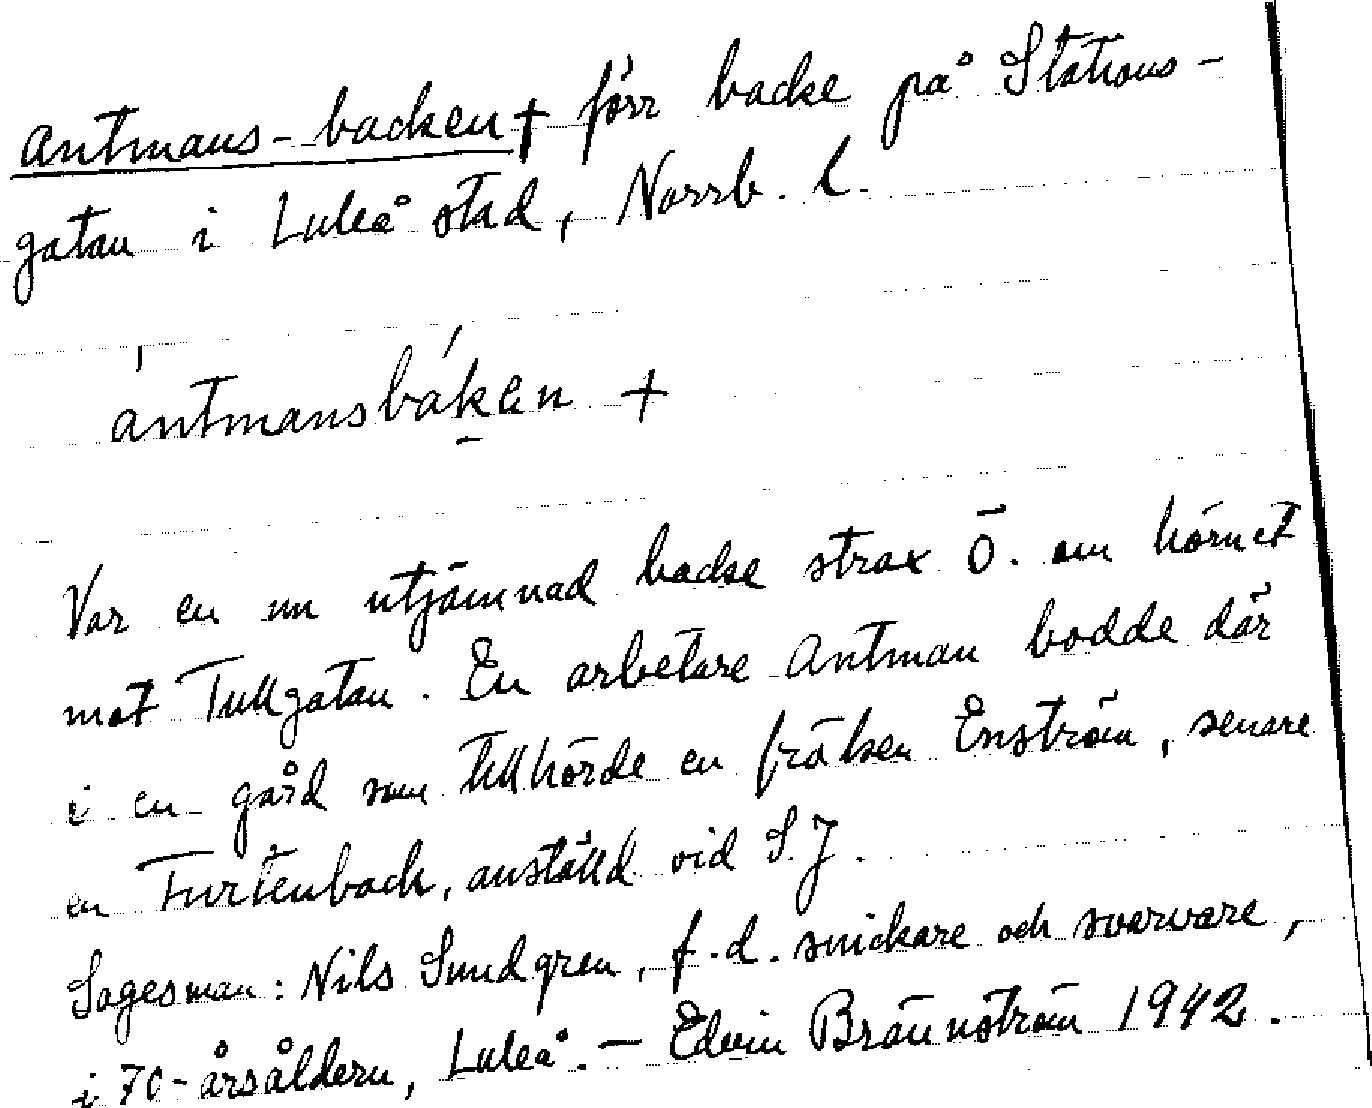 Antmans-backen † förr backe på Stations-
gatan i Luleå stad, Norrb. l.
ántmansbáken +
Var en nu utjämnad backe strax Ö. om hörnet
mot Tullgatan. En arbetare Antman bodde där
i en gård som tillhörde en fröken Enström, senare
en Furtenback, anställd vid S.J.
Sagesman: Nils Sundgren, f.d. snickare och svarvare,
i 70-årsåldern, Luleå. — Edvin Brännström 1942.